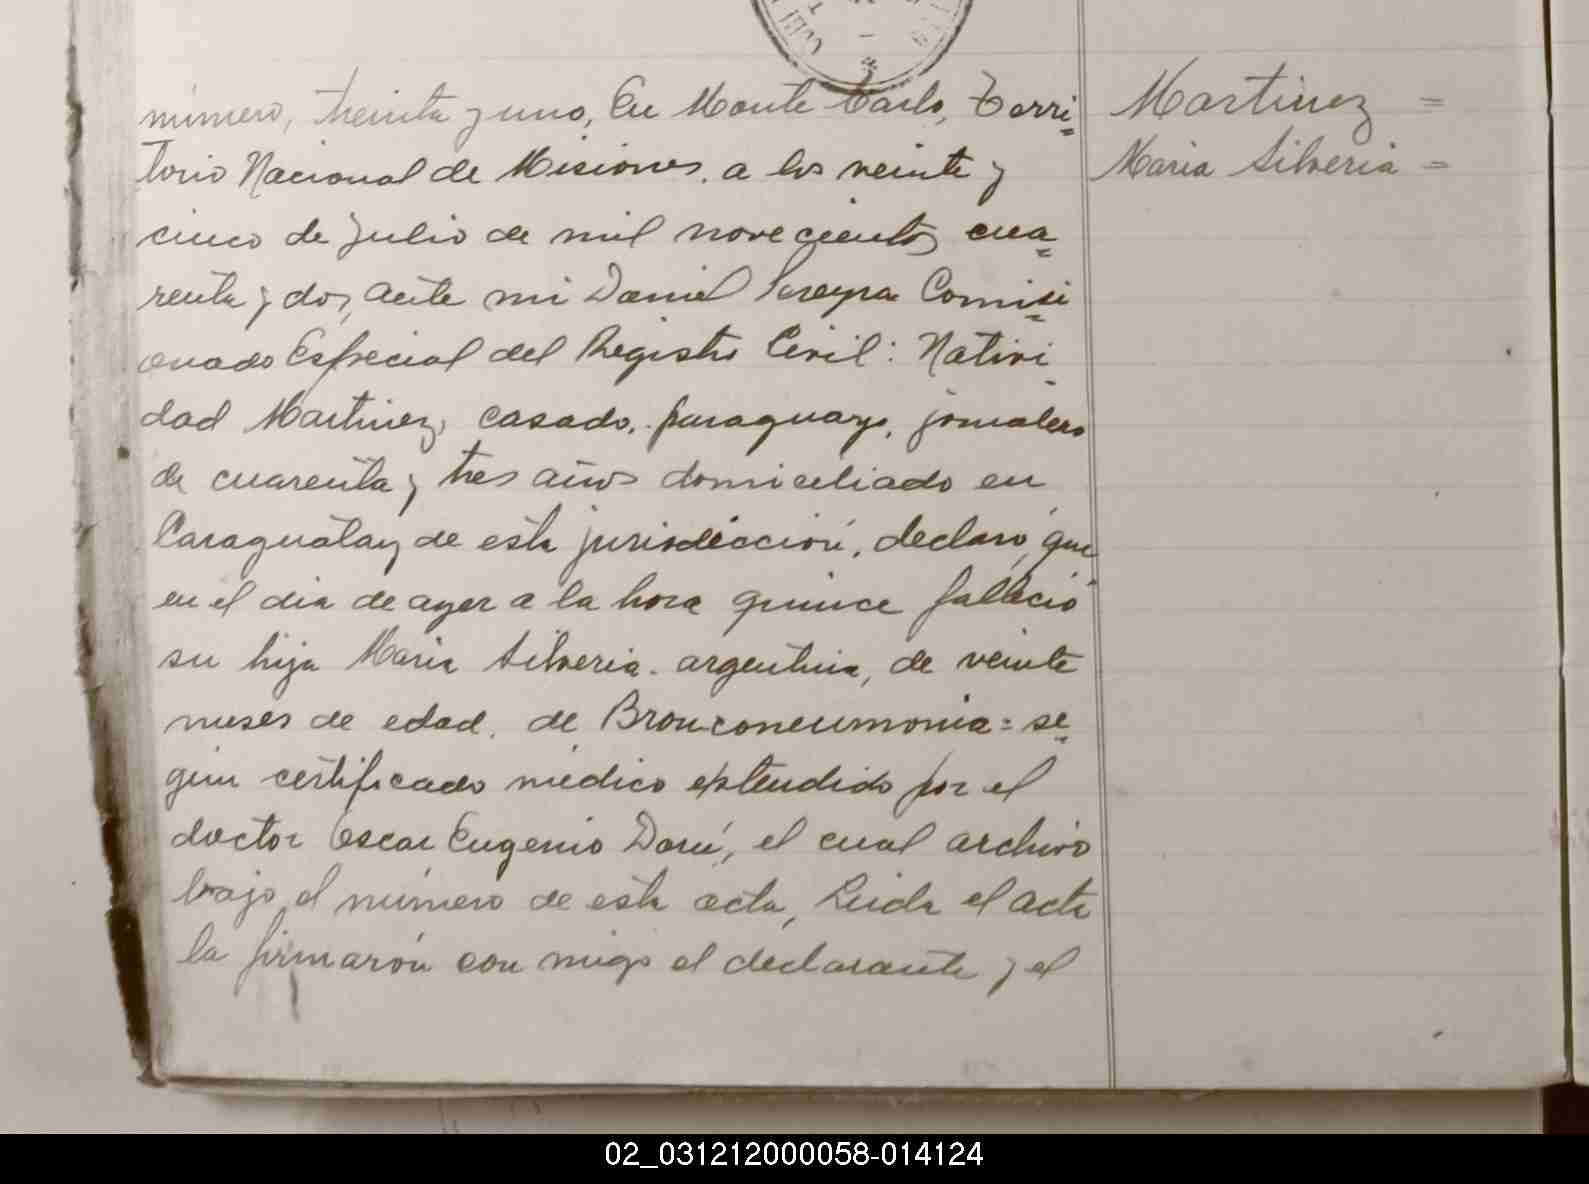 número, treinta y uno, En Monte Carlo, Terri=
torio Nacional de Misiones. a los veinte y
cinco de julio de mil novecientos cua=
renta y dos, ante mi Daniel Pereyra Comisi=
onado Especial del Registro Civil: Nativi-
dad Martinez, casado, paraguayo, jornalero
de cuarenta y tres años domiciliado en
Caraguatay de esta jurisdicción, declaró, que
en el dia de ayer a la hora quince falleció
su hija Maria Silveria. argentina, de veinte
meses de edad. de Bronconeumonia= se=
gún certificado médico extendido por el
doctor Oscar Eugenio Darú, el cual archivo
bajo el número de esta acta, Leida el acta
la firmarón con migo el declarante y el
Martinez =
Maria Silveria =
02_031212000058-014124